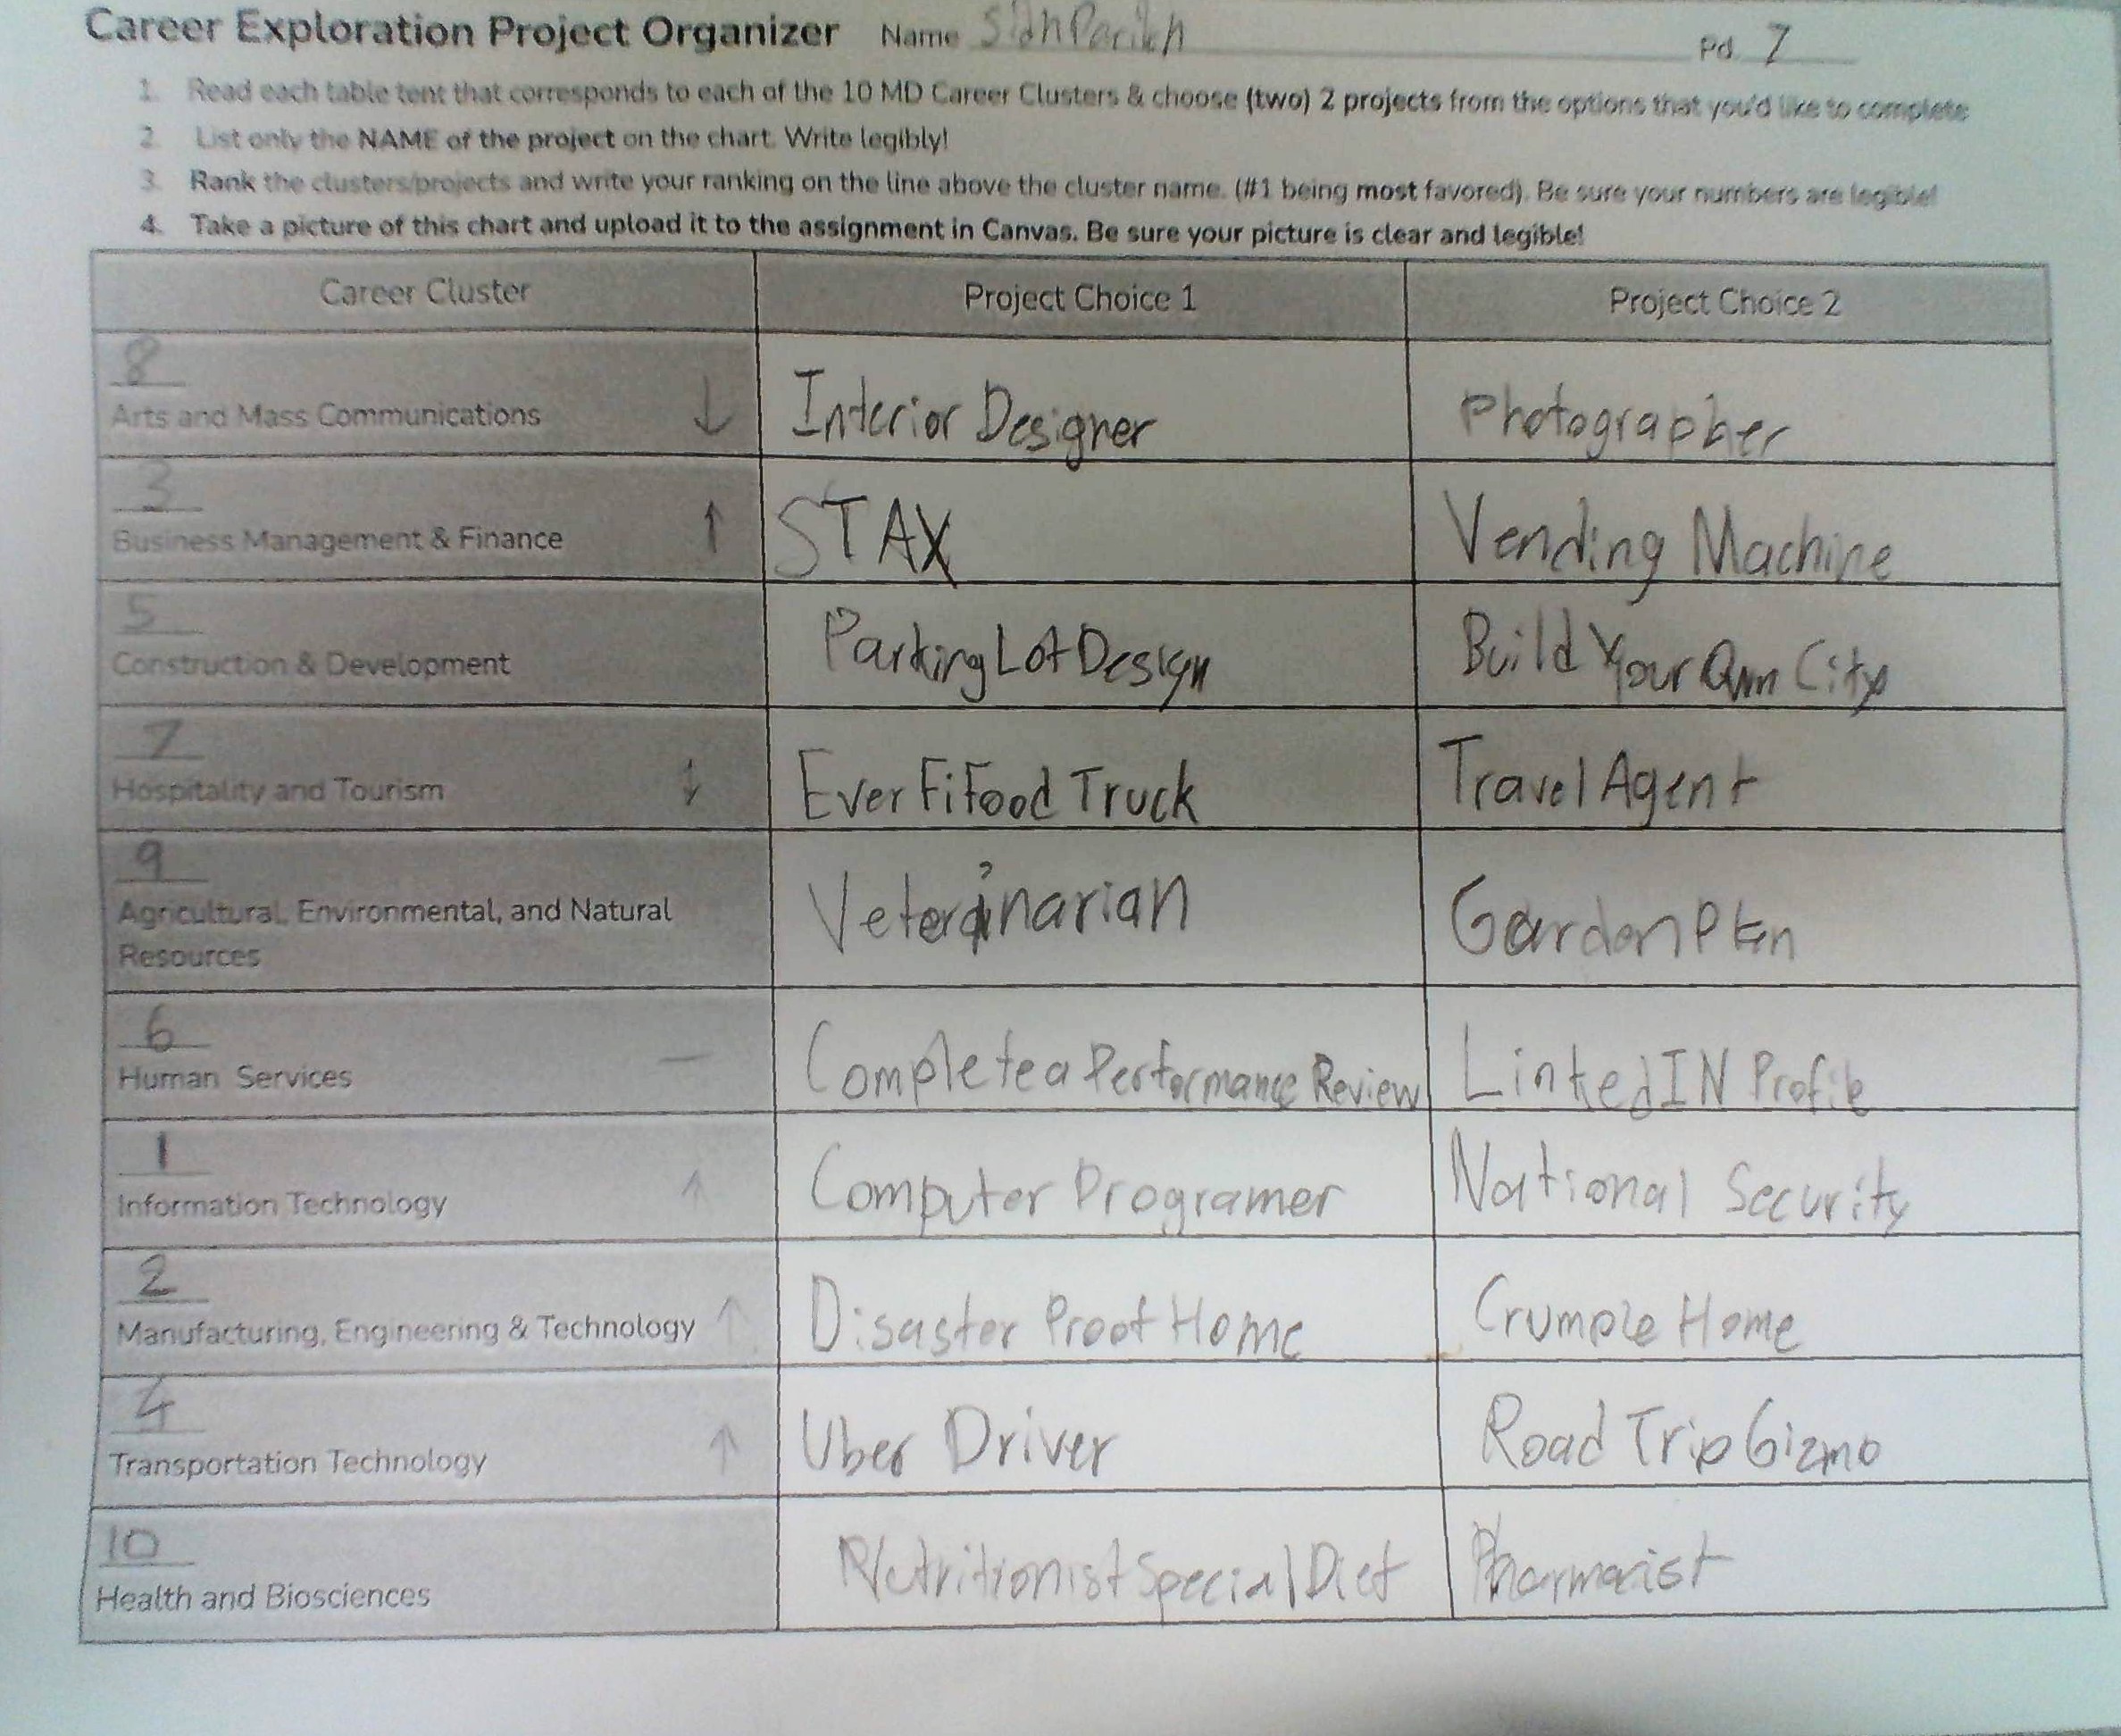 Career Exploration Project Organizer Name Sidh Parikh Pd. 7
1. Read each table tent that corresponds to each of the 10 MD Career Clusters & choose (two) 2 projects from the options that you'd like to complete
2. List only the NAME of the project on the chart. Write legibly!
3. Rank the clusters/projects and write your ranking on the line above the cluster name. (#1 being most favored). Be sure your numbers are legible!
4. Take a picture of this chart and upload it to the assignment in Canvas. Be sure your picture is clear and legible!
Career Cluster Project Choice 1 Project Choice 2
8
Arts and Mass Communications ↓ Interior Designer Photographer
3
Business Management & Finance ↑ STAX Vending Machine
5
Construction & Development Parking Lot Design Build Your Own City
7
Hospitality and Tourism ↕ EverFi Food Truck Travel Agent
9
Agricultural, Environmental, and Natural Veterinarian Garden Plan
Resources
6
Human Services — Complete a Performance Review LinkedIN Profile
1
Information Technology ↑ Computer Programer National Security
2
Manufacturing, Engineering & Technology ↑ Disaster Proof Home Crumple Home
4
Transportation Technology ↑ Uber Driver Road Trip Gizmo
10
Health and Biosciences Nutritionist Special Diet Pharmacist